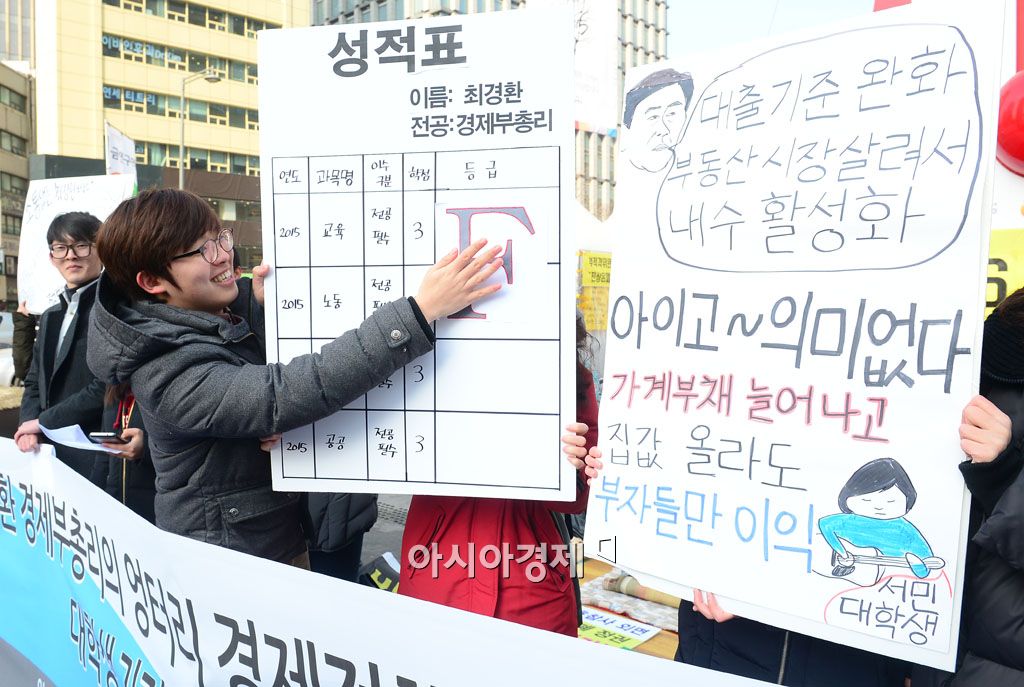 성적표
이름: 최경환
전공:경제부총리
연도 과목명 이수구분 학점 등급
2015 교육 전공필수 3 F
2015 노동 전공
3
2015 공공 전공필수 3
대출기준 완화
부동산시장살려서
내수 활성화
아이고~의미없다
가계부채 늘어나고
집값 올라도
부자들만 이익
서민
대학생
아시아경제
환 경제부총리의 엉터리 경제정
대학생 기